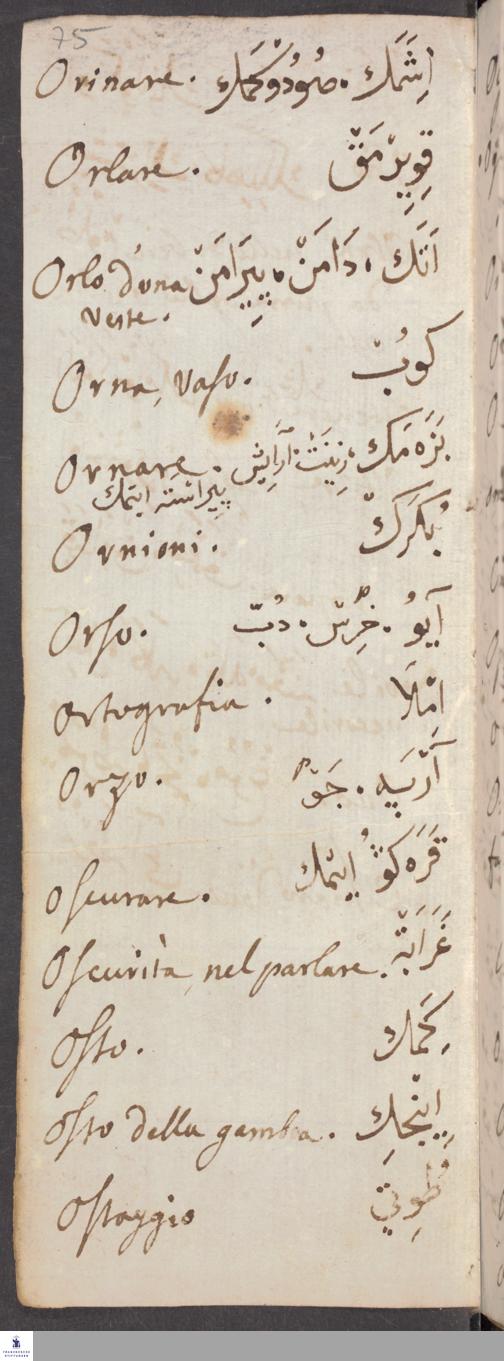 75
Orinare. اِشَمَك . صُودُوكْمَك
Orlare. قِوِيرْمَقْ
Orlo d'una اَتَك . دَامَنْ . پِيرَامَنْ
veste.
Orna, vaso. كوُبْ
Ornare. بَزَه مَك . زِينَتْ . آرَايِشْ
پِيرَاسْتَه ايتمَك
Ornioni. بُكَرَكْ
Orso. آيوُ . خِرْسْ . دُبّ
Ortografia. اِمْلَا
Orzo. آرْپَه . جَوْ
Oscurare. قَرَه كوُ اِيتْمَك
Oscurità, nel parlare. غَرَابَتْ
Osto. كَمِك
Osto della gamba. اِينْجِك
Ostaggio